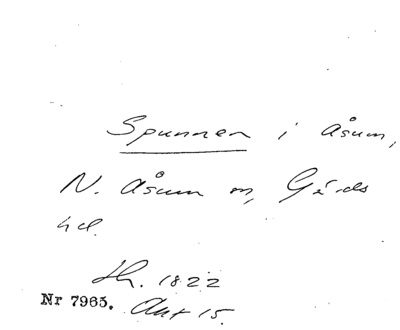 Spunnen i Åsum,
N. Åsum sn, Gärds
hd.
Lh. 1822
Nr 7965. Akt 15.